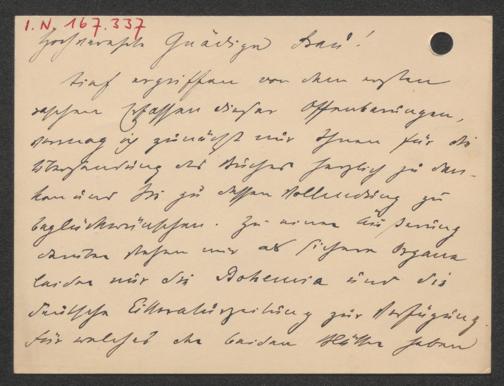 I.N. 167.337
Hochverehrte Gnädige Frau!
Tief ergriffen von dem ersten
raschen Erfassen dieser Offenbarungen,
vermag ich zunächst nur Ihnen für die
Übersendung des Buches herzlich zu dan-
ken und Sie zu dessen Vollendung zu
beglückwünschen. Zu einer Äußerung
darüber stehen mir als sichere Organe
leider nur die Bohemia und die
deutsche Litteraturzeitung zur Verfügung.
Für welches der beiden Blätter haben